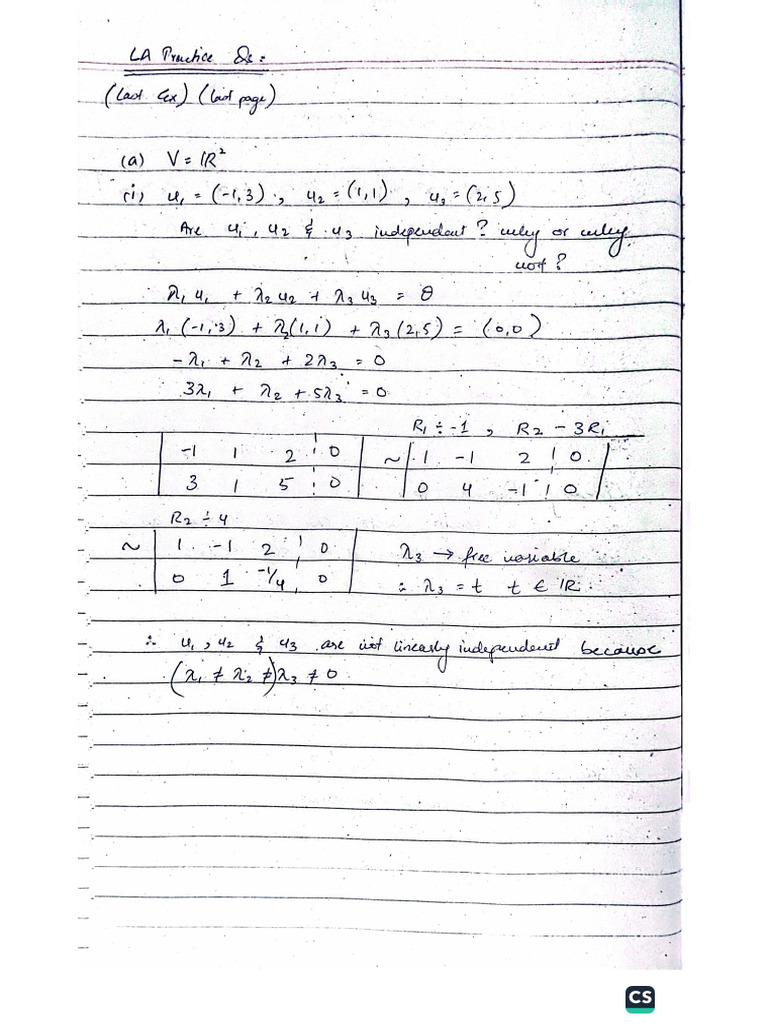 LA Practice Qs:
(Last Ex) (last page)
(a) V = IR²
(i) u₁ = (-1,3), u₂ = (1,1), u₃ = (2,5)
Are u₁, u₂ & u₃ independent? why or why
not?
λ₁u₁ + λ₂u₂ + λ₃u₃ = θ
λ₁(-1,3) + λ₂(1,1) + λ₃(2,5) = (0,0)
-λ₁ + λ₂ + 2λ₃ = 0
3λ₁ + λ₂ + 5λ₃ = 0
R₁ ÷ -1, R₂ - 3R₁
-1 1 2 | 0 ~ 1 -1 2 | 0
3 1 5 | 0 0 4 -1 | 0
R₂ ÷ 4
~ 1 -1 2 | 0 λ₃ → free variable
0 1 -1/4 | 0 ∴ λ₃ = t t ∈ IR.
∴ u₁, u₂ & u₃ are not linearly independent because
(λ₁ ≠ λ₂ ≠) λ₃ ≠ 0
CS